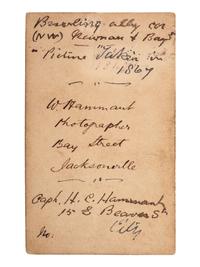 Bowling alley cor
(NW) Newnan & Bay St
Picture "Taken in
1867
W Hammant
Photographer
Bay Street
Jacksonville
Capt. H. C. Hammant
15 E Beaver St
City
No: